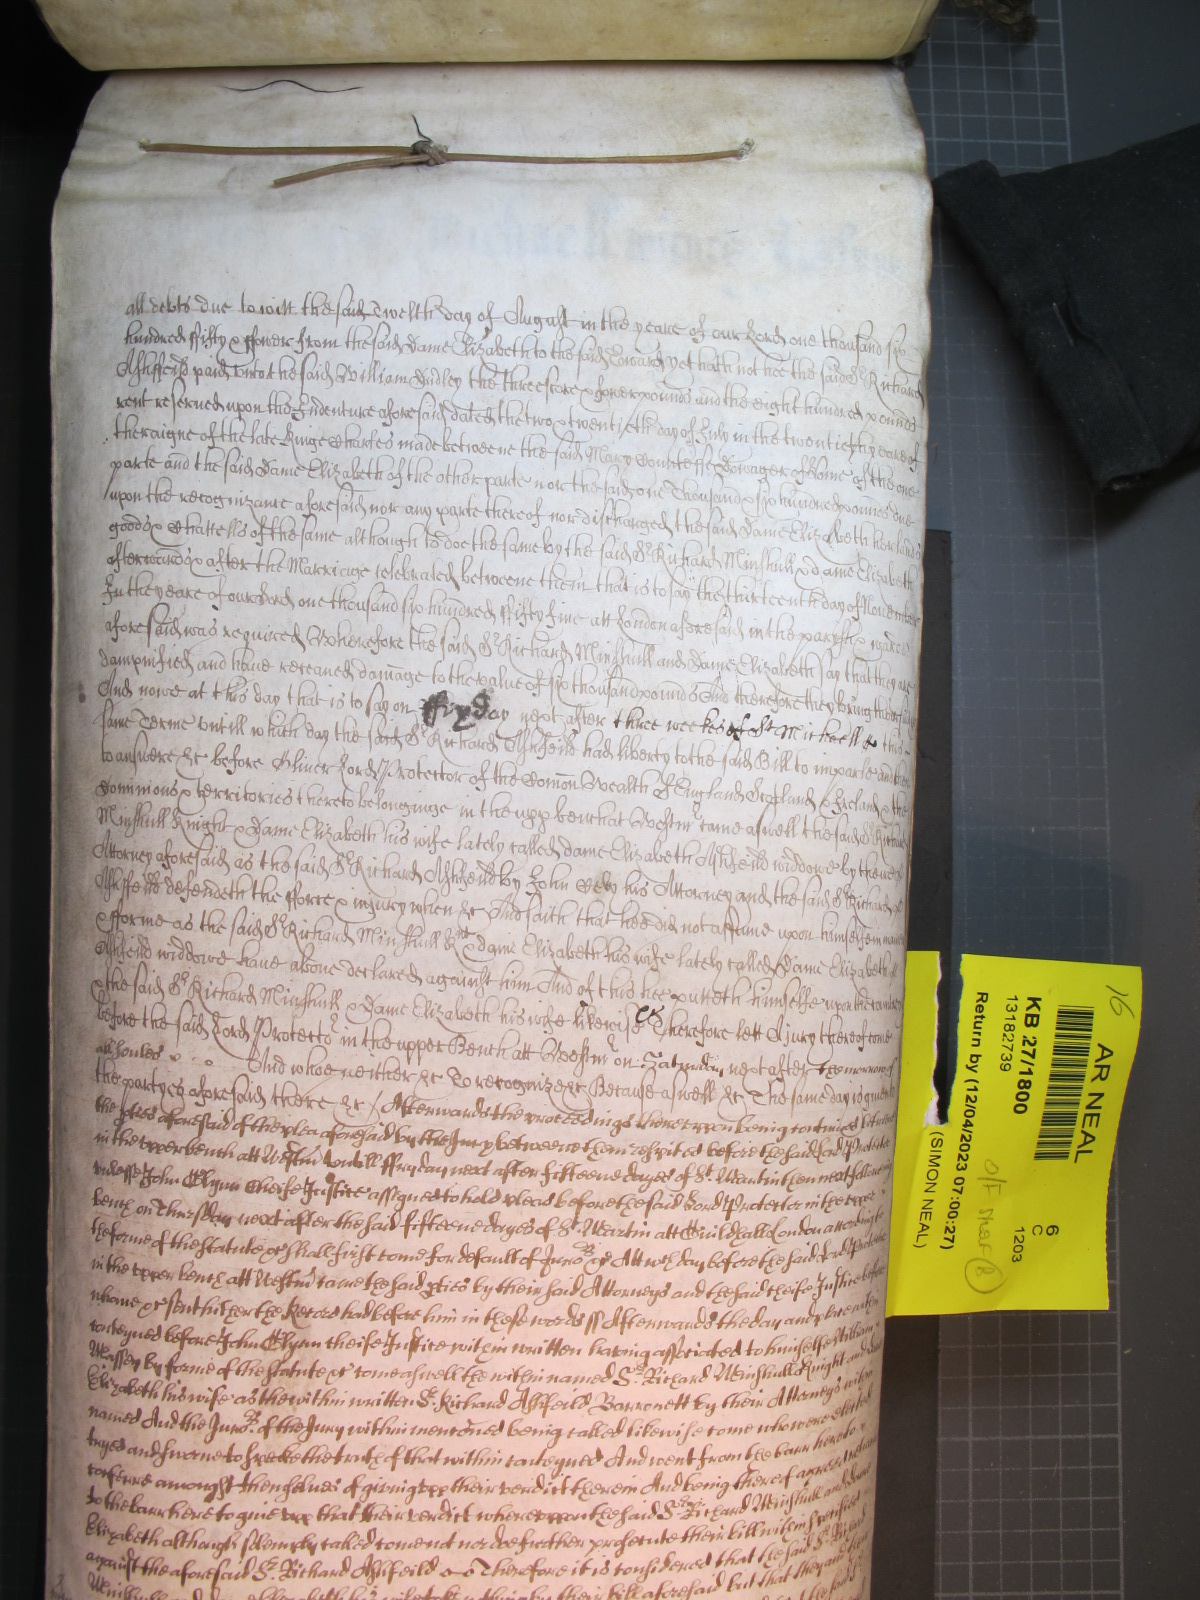 all debts due to witt the said Twelth day of August in the yeare of our Lord one thousand six
hundred fifty & fower from the said Dame Elizabeth to the said Edward yet hath not hee the said Sr Richard
Ashfeild paid unto the said William Dudley the threescore & fower pounds and the eight hundred pounds
rent reserved upon the Indenture aforesaid dated the two & twentieth day of July in the twentieth yeare of
the raigne of the late Kinge Charles made betweene the said Mary Countesse Dowager of Home of the one
parte and the said Dame Elizabeth of the other parte nor the said one Thousand & six hundred pounds due
upon the recognizance aforesaid nor any parte thereof nor discharged the said Dame Elizabeth her lands
goods & Chattells of the same although to doe the same by the said Sr Richard Minshull & dame Elizabeth
afterwards & after the Marriage celebrated betweene them that is to say the thirteenth day of November
In the yeare of our Lord one thousand six hundred fifty five att London aforesaid in the parish & ward
aforesaid was required Wherefore the said Sr Richard Minshull and Dame Elizabeth say that they are
dampnified and have receaved damage to the value of six thousand pounds And therefore they bring their suite
And nowe at this day that is to say on ffryday next after three weekes of St Michaell in this
same Terme untill which day the said Sr Richard Ashfeild had liberty to the said Bill to imparle and then
to answere &c before Oliver Lord Protector of the Comon Wealth of England Scotland & Ireland & the
dominions & territories thereto belonginge in the upp bench at Westmr came aswell the said Sr Richard
Minshull Knight & Dame Elizabeth his wife lately called dame Elizabeth Ashfeild widdowe by their
Attorney aforesaid as the said Sr Richard Ashfeild by John his Attorney and the said Sr Richard
Ashfeild defendeth the fforce & injury when &c And saith that hee did not assume upon himselfe in manner
& forme as the said Sr Richard Minshull Knt & dame Elizabeth his wife lately called Dame Elizabeth
Ashfeild widdowe have above declared against him And of this hee putteth himselfe upon the country
& the said Sr Richard Minshull & Dame Elizabeth his wife likewise &c Therefore lett a Jury thereof come
before the said Lord Protector in the upper Bench att Westmr on Saturday next after the morrow of
all soules And whoe neither &c To recognize &c Because aswell &c The same day is given to
the partyes aforesaid there &c / Afterwards the proceedings thereupon being continued betweene
the ptes aforesaid of the plea aforesaid by the Jury betweene them respited before the said Lord Protector
in the upper bench att Westmr untill ffryday next after fifteene dayes of St Martin then next followinge
unlesse John Glynn Cheife Justice assigned to hold pleas before the said Lord Protector in the upper
bench on Thursday next after the said fifteene dayes of St Martin att Guildhall London according to
the forme of the statute &c shall first come for default of Juro &c Att wch day before the said Lord Protector
in the upper bench att Westmr came the said pties by their said Attorneys and the said cheife Justice before
whome &c sent hither the Record had before him in these words ss Afterwards the day and place within
conteyned before John Glynn cheife Justice within written having associated to himselfe William
Massey by forme of the statute &c came aswell the within named Sr Richard Minshull Knight and
Elizabeth his wife as the within written Sr Richard Ashfeild Barronett by their Attorneys within
named And the Juro of the Jury within mencoed being called likewise come who were elected
tryed and sworne to speake the truth of that within conteyned And went from the barr here to
conferre amongst themselves of giving upp their verdict therein And being thereof agreed
to the barr here to give upp that their verdict whereupon the said Sr Richard Minshull and
Elizabeth although solemnly called come not nor doe further prosecute their bill within specified
against the aforesaid Sr Richard Ashfeild Therefore it is considered that the said Sr Richard
nothing by their bill aforesaid but that they
16
AR NEAL
KB 27/1800
13182739
Return by (12/04/2023 07:00:27)
(SIMON NEAL)
6
C
1203